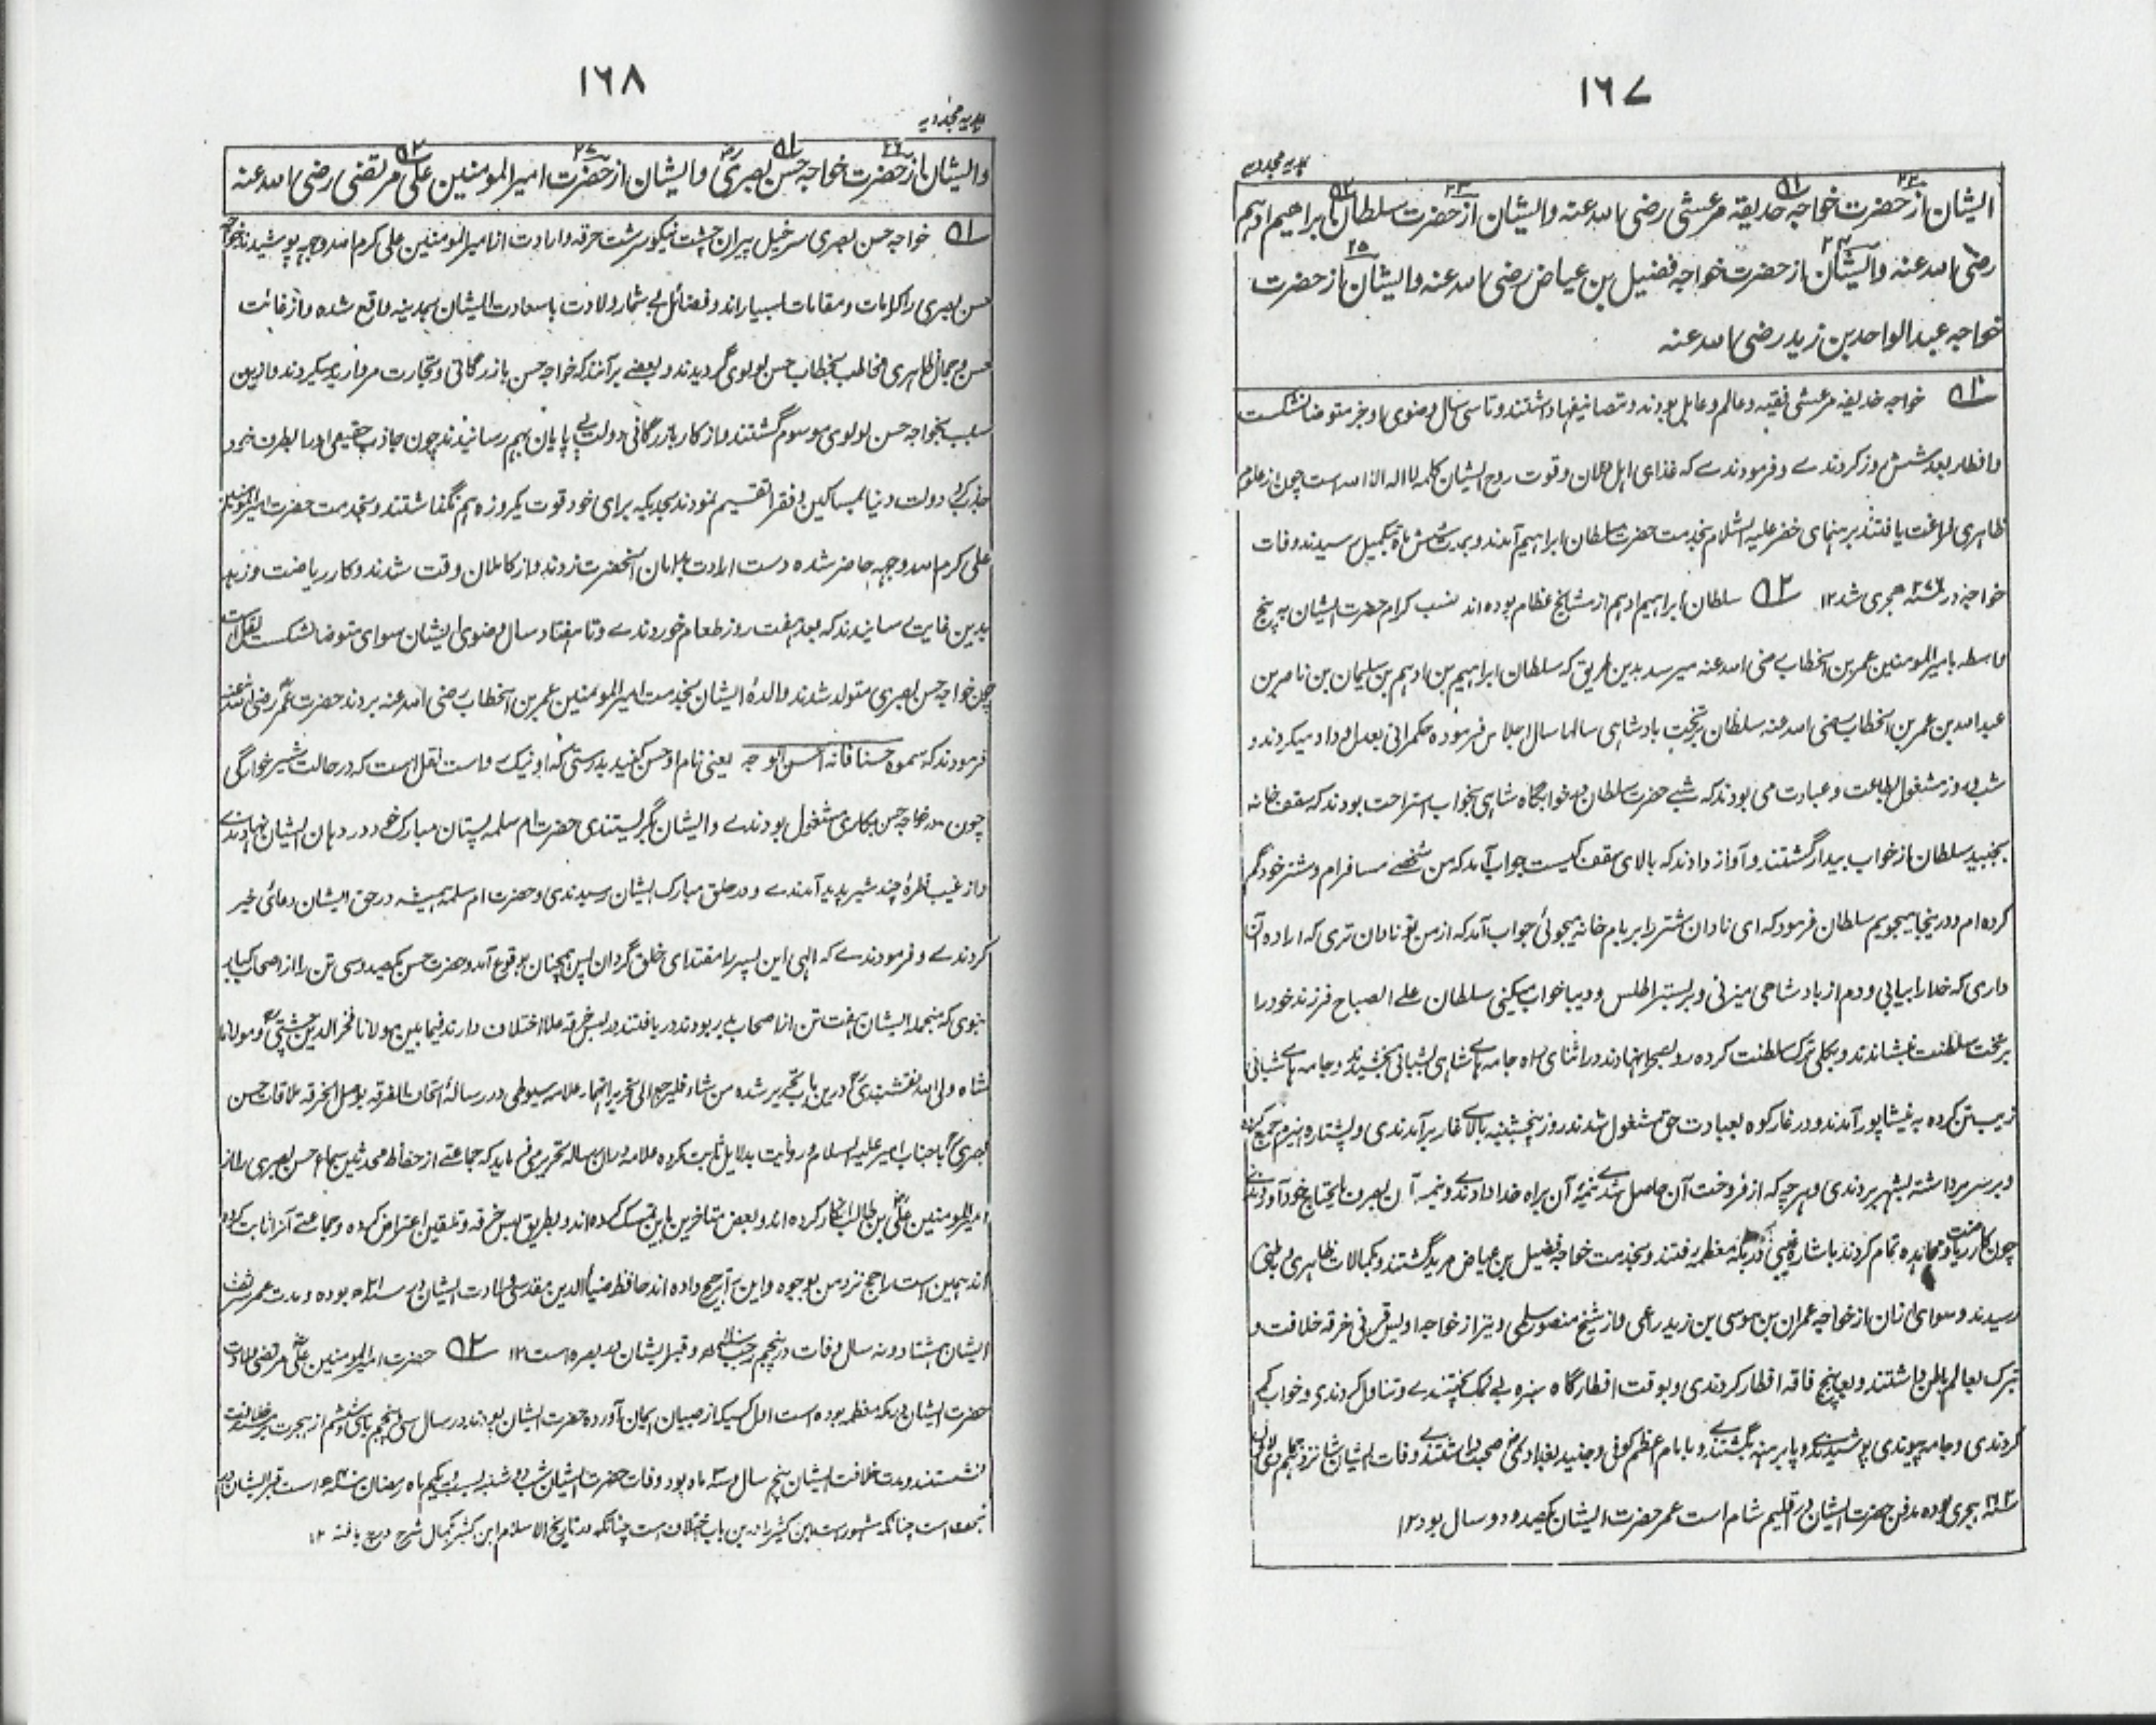 ١٦٧
ہدیہ مجددیہ
ایشان از حضرت خواجہ حذیفہ مرعشی رضی اللہ عنہ و ایشان از حضرت سلطان ابراھیم ادہم
رضی اللہ عنہ و ایشان از حضرت خواجہ فضیل بن عیاض رضی اللہ عنہ و ایشان از حضرت
خواجہ عبدالواحد بن زید رضی اللہ عنہ
خواجہ حذیفہ مرعشی فقیہ و عالم و عامل بودند و تصانیفہا داشتند و تا سی سال وضوی او جز متوضا نشکست
و افطار بعد شش روز کردندے و فرمودندے کہ غذای اہل و قوت روح ایشان کلمہ لا الہ الا اللہ است چون از علوم
ظاہری فراغت یافتند برہنمای خضر علیہ السلام بخدمت حضرت سلطان ابراہیم آمدند و بمدت شش ماہ بتکمیل رسیدند وفات
خواجہ در ھجری شد ١٢ سلطان ابراہیم ادہم از مشایخ عظام بودہ اند نسب کرام حضرت ایشان بہ پنج
واسطہ بامیر المومنین عمر بن الخطاب رضی اللہ عنہ میرسد بدین طریق کہ سلطان ابراہیم بن ادہم بن سلیمان بن ناصر بن
عبد اللہ بن عمر بن الخطاب رضی اللہ عنہ سلطان بتخت بادشاہی سالہا سال اجلاس فرمودہ حکمرانی بعدل و داد میکردند و
شب و روز مشغول بطاعت و عبادت می بودند کہ شبے حضرت سلطان بخوابگاہ شاہی بخواب استراحت بودند کہ سقف خانہ
بجنبید سلطان از خواب بیدار گشتند و آواز دادند کہ بالای سقف کیست جواب آمد کہ من شخصے مسافرام و شتر خود گم
کردہ ام و در ینجا میجویم سلطان فرمود کہ ای نادان شتر را بر بام خانہ میجوئی جواب آمد کہ از من تو نادان تری کہ ارادہ آن
داری کہ خدا را بیابی و دم از بادشاہی میزنی و بر بستر اطلس و دیبا خواب میکنی سلطان علے الصباح فرزند خود را
بر تخت سلطنت بنشاندند و بکلی ترک سلطنت کردہ رو بصحرا نہادند در اثنای راہ جامہ ہاے شاہی بشبانی بخشیدند و جامہ ہاے شبانی
زیب تن کردہ بہ نیشاپور آمدند و در غار کوہ بعبادت حق مشغول شدند روز پنجشنبہ بالاے غار برآمدندی و پشتارہ ہیزم جمع کردہ
و بر سر برداشتہ بشہر بردندی و ہر چہ کہ از فروخت آن حاصل شدے نیمہ آن براہ خدا دادندے و نیمہ آن بصرف مایحتاج خود آوردندے
چون کار ریاضت و مجاہدہ تمام کردند باشارہ غیبی بمکہ معظمہ رفتند و بخدمت خواجہ فضیل بن عیاض مرید گشتند و بکمالات ظاہری و باطنی
رسیدند و سوای ازان از خواجہ عمران بن موسی بن زید راعی و از شیخ منصور سلمی و نیز از خواجہ اویس قرنی خرقہ خلافت و
تبرک بعالم باطن داشتند و بعد پنج فاقہ افطار کردندی و بوقت افطار گاہ سبزہ بے نمک پختندے و تناول کردندی و خواب کم
کردندی و جامہ پیوندی پوشیدندے و پا برہنہ گشتندے و با امام اعظم کوفی و جنید بغدادی صحبت داشتندے وفات ایشان شانزدہم
ہجری بودہ مدفن حضرت ایشان در اقلیم شام است عمر حضرت ایشان یکصد و دو سال بود ١٢
١٦٨
ہدیہ مجددیہ
و ایشان از حضرت خواجہ حسن بصری و ایشان از حضرت امیر المومنین علی مرتضی رضی اللہ عنہ
خواجہ حسن بصری سرخیل پیران چشت نیکو سرشت خرقہ و ارادت از امیر المومنین علی کرم اللہ وجہہ پوشیدند خواجہ
حسن بصری را کرامات و مقامات بسیار اند و فضائل بے شمار ولادت باسعادت ایشان بمدینہ واقع شدہ و از غائت
حسن و جمال ظاہری مخاطب بخطاب حسن لولوی گردیدند و بعضے برآنند کہ خواجہ حسن بازرگانی و تجارت مروارید میکردند و ازین
سبب بخواجہ حسن لولوی موسوم گشتند و از کار بازرگانی دولت بے پایان بہم رسانیدند چون جاذب حقیقی او را بطرف خود
جذب کرد دولت دنیا بمساکین و فقرا تقسیم نمودند بحدیکہ برای خود قوت یکروزہ ہم نگذاشتند و بخدمت حضرت امیر المومنین
علی کرم اللہ وجہہ حاضر شدہ دست ارادت بدامان آنحضرت زدند و از کاملان وقت شدند و کار ریاضت و زہد
بدین غایت رسانیدند کہ بعد ہفت روز طعام خوردندے و تا ہفتاد سال وضوی ایشان سوای متوضا نشکست نقل است
چون خواجہ حسن بصری متولد شدند والدۂ ایشان بخدمت امیر المومنین عمر بن الخطاب رضی اللہ عنہ بردند حضرت عمر رضی اللہ عنہ
فرمودند کہ سموہ حسنا فانہ احسن الوجہ یعنی نام او حسن کنید بدرستی کہ او نیک رو است نقل است کہ در حالت شیر خوارگی
چون مادر خواجہ حسن بکاری مشغول بودندے و ایشان بگریستندی حضرت ام سلمہ پستان مبارک خود در دہان ایشان نہادندے
و از غیب قطرۂ چند شیر پدید آمدندے و در حلق مبارک ایشان رسیدندی و حضرت ام سلمہ ہمیشہ در حق ایشان دعائی خیر
کردندے و فرمودندے کہ الہی این پسر را مقتدای خلق گردان پس ہمچنان بوقوع آمد و حضرت حسن یکصد و سی تن را از اصحاب کبار
نبوی کہ منجملہ ایشان ہفت تن از اصحاب بدر بودند دریافتند در لبس خرقہ علما اختلاف دارند فیما بین مولانا فخر الدین چشتی و مولانا
شاہ ولی اللہ نقشبندی درین باب تحریر شدہ من شاء فلیرجع الی تحریراتہما علامہ سیوطی در رسالۂ اتحاف الفرقہ بوصل الخرقہ ملاقات حسن
بصری باجناب امیر علیہ السلام و روایت بدلایل ثابت کردہ علامہ دران رسالہ تحریر می فرماید کہ جماعتے از حفاظ محدثین سماع حسن بصری را از
امیر المومنین علی بن ابی طالب انکار کردہ اند و بعض متاخرین باین تمسک کردہ اند و بطریق لبس خرقہ و تلقین اعتراض کردہ و جماعتے آنرا ثابت کردہ
اند ہمین است راجح نزد من بوجوہ و این را ترجیح دادہ اند حافظ ضیاء الدین مقدسی ولادت ایشان در بودہ و مدت عمر شریف
ایشان ہشتاد و نہ سال وفات در پنجم رجب و قبر ایشان در بصرہ است ١٢ حضرت امیر المومنین علی مرتضی ولادت
حضرت ایشان در مکہ معظمہ بودہ است اول کسیکہ از صبیان ایمان آوردہ حضرت ایشان بودند در سال سی و پنجم یا سی و ششم از ہجرت بر مسند خلافت
نشستند و مدت خلافت ایشان پنج سال و سہ ماہ بود وفات حضرت ایشان شب دو شنبہ بست و یکم ماہ رمضان است قبر ایشان در
نجف است چنانکہ مشہور است ابن کثیر را درین باب اختلاف است چنانکہ در تاریخ الاسلام ابن کثیر بکمال شرح یافتہ ١٢